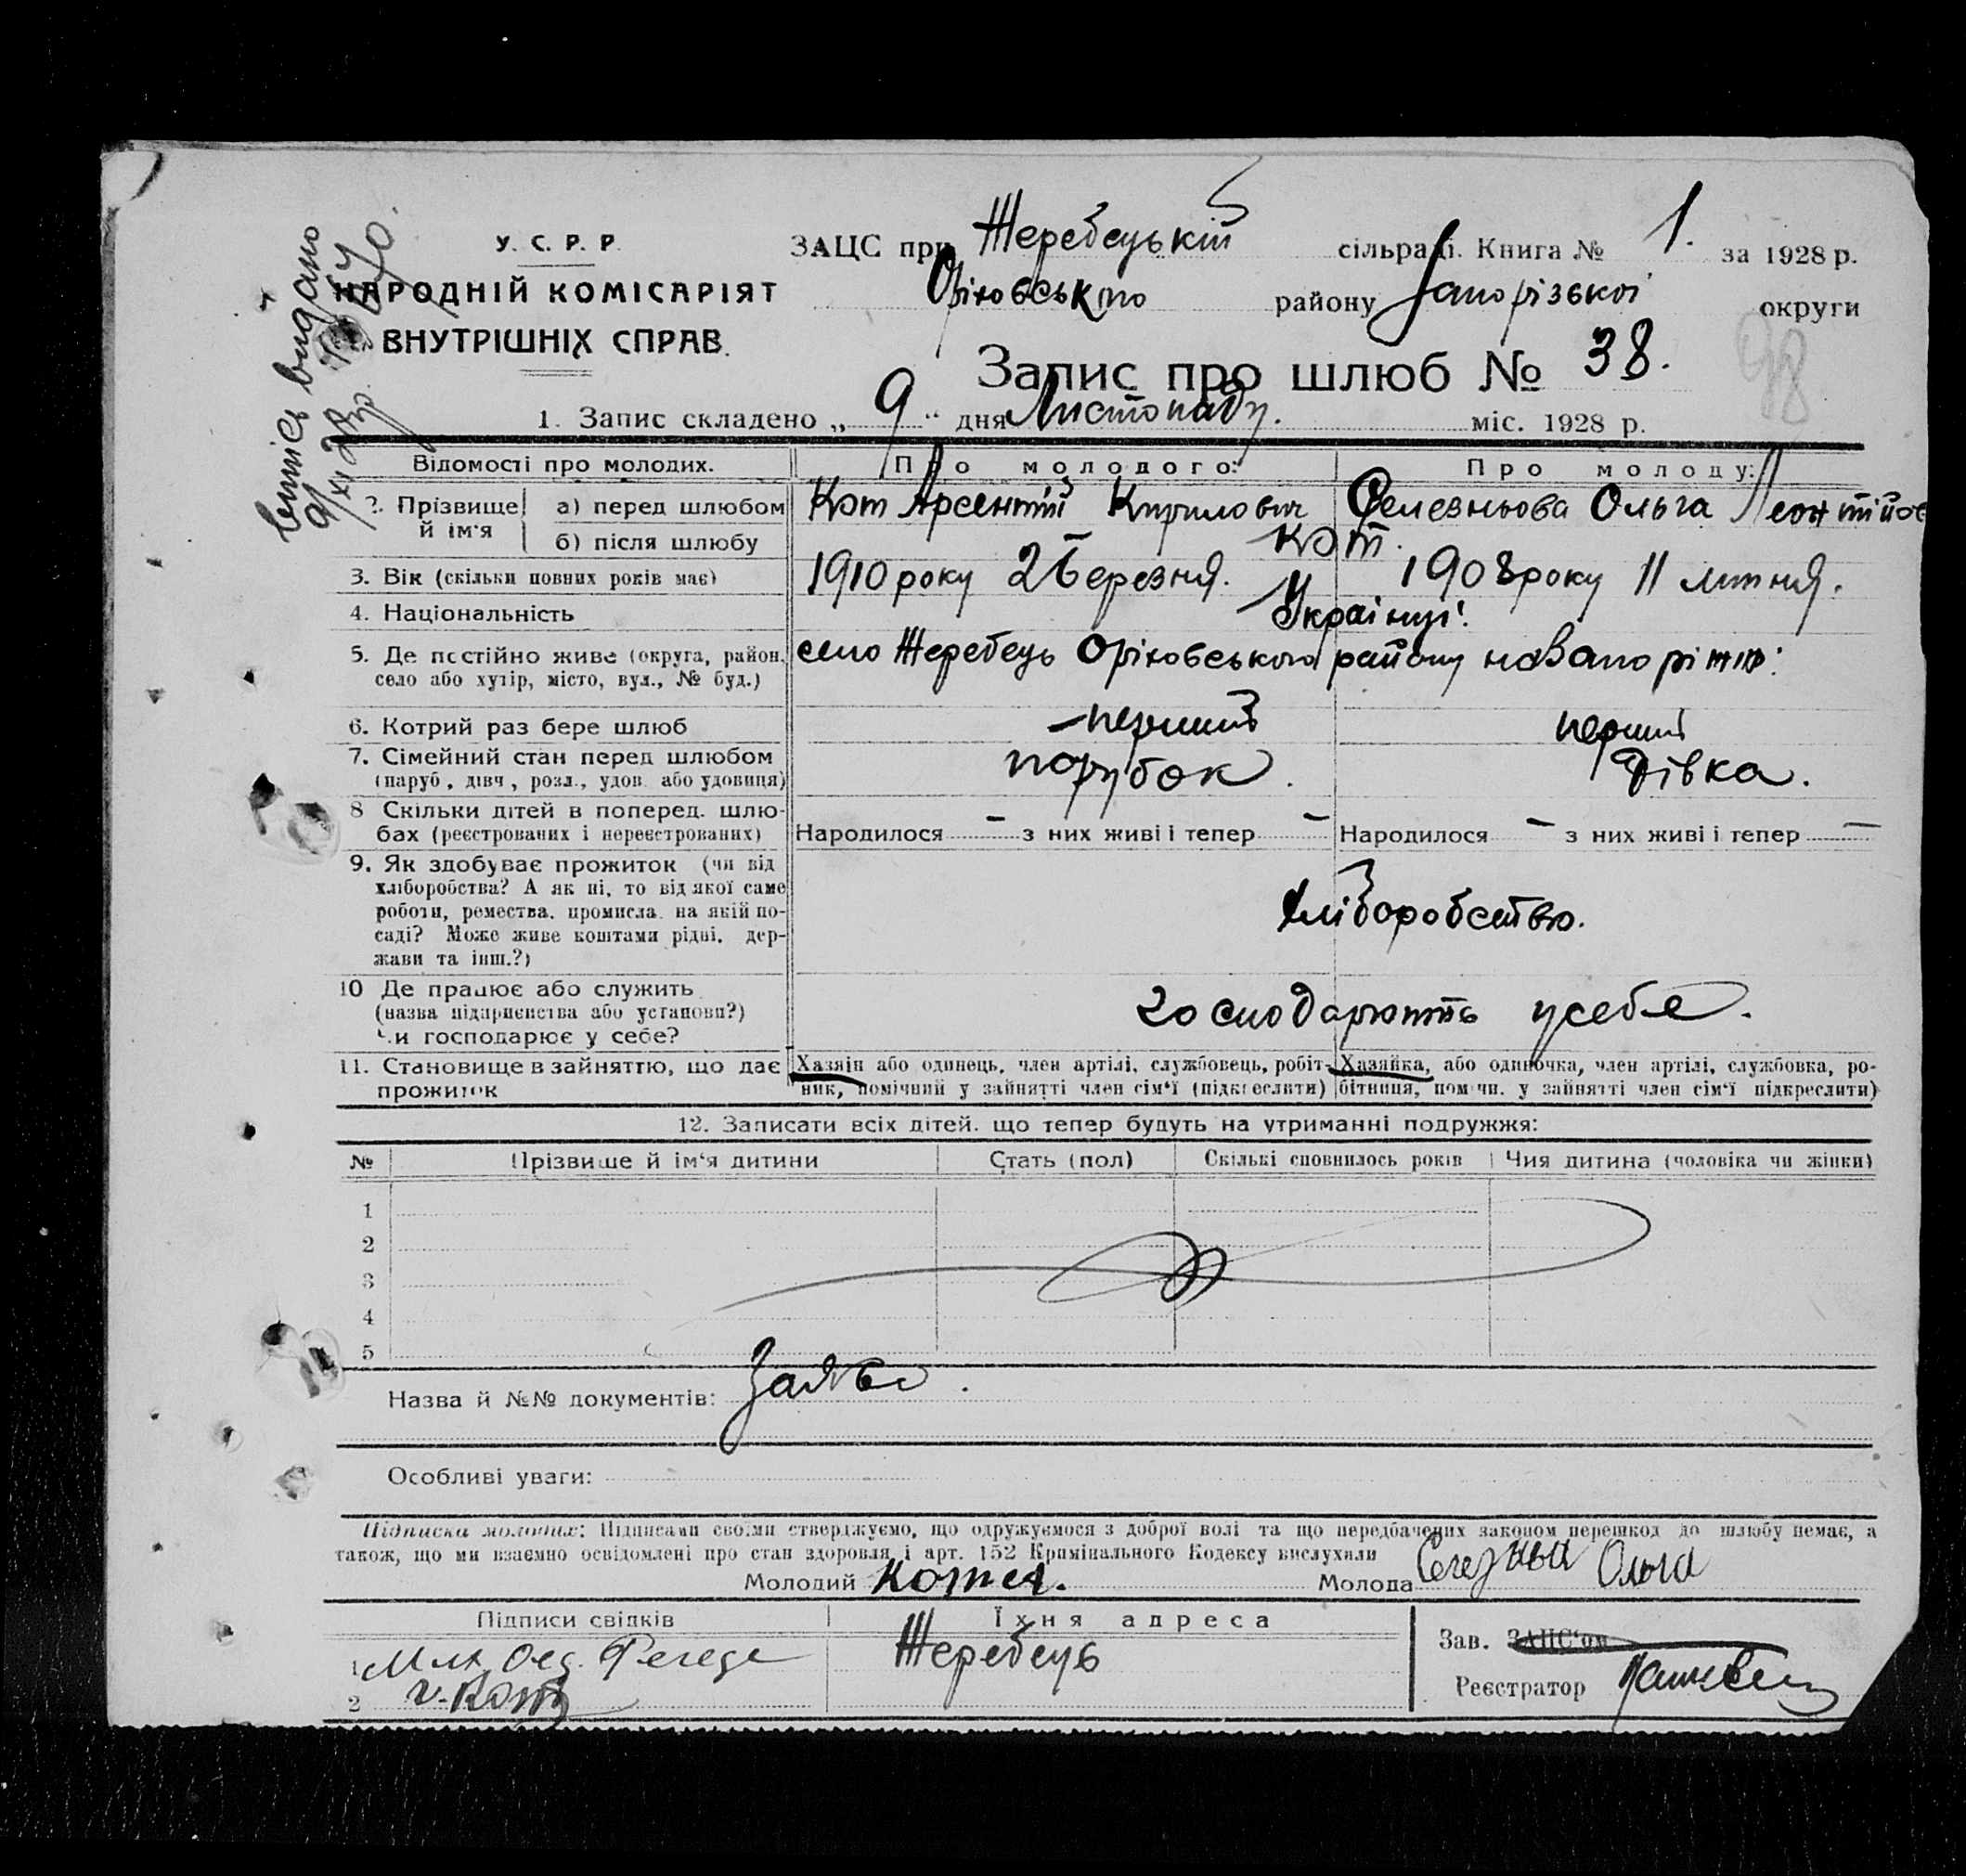 витяг видано
9/XI 28р.
У. С. Р. Р.
НАРОДНІЙ КОМІСАРІЯТ
ВНУТРІШНІХ СПРАВ.
ЗАЦС при Жеребецькій сільраді. Книга № 1. за 1928 р.
Оріховського району Запорізької округи
Запис про шлюб № 38.
98
1. Запис складено „ 9 “ дня Листопаду. міс. 1928 р.
Відомості про молодих. Про молодого: Про молоду:
2. Прізвище й ім'я а) перед шлюбом Кот Арсентій Кирилович Селезньова Ольга Леонтійов
б) після шлюбу Кот.
3. Вік (скільки повних років має) 1910 року 2 Березня. 1908 року 11 липня.
4. Національність Українці.
5. Де постійно живе (округа, район, село Жеребець Оріховського району на Запоріжжю:
село або хутір, місто, вул., № буд.)
6. Котрий раз бере шлюб перший перший
7. Сімейний стан перед шлюбом парубок. дівка.
(паруб, дівч, розл., удов. або удовиця)
8 Скільки дітей в поперед. шлю-
бах (реєстрованих і нереєстрованих) Народилося — з них живі і тепер — Народилося — з них живі і тепер —
9. Як здобуває прожиток (чи від
хліборобства? А як ні, то від якої саме
роботи, ремества, промисла, на якій по-
саді? Може живе коштами рідні, дер-
жави та інш.?)
Хліборобство.
10 Де працює або служить
(назва підприємства або установи?)
Чи господарює у себе?
господарюють у себе.
11. Становище в зайняттю, що дає Хазяін або одинець, член артілі, службовець, робіт- Хазяйка, або одиночка, член артілі, службовка, ро-
прожиток ник, помічний у зайнятті член сім'ї (підкреслити) бітниця, помічн. у зайнятті член сім'ї підкреслити)
12. Записати всіх дітей, що тепер будуть на утриманні подружжя:
№ Прізвище й ім'я дитини Стать (пол) Скількі сповнилось років Чия дитина (чоловіка чи жінки)
1
2
3
4
5
Назва й №№ документів: Заява.
Особливі уваги:
Підписка молодих: Підписами своїми стверджуємо, що одружуємося з доброї волі та що передбачених законом перешкод до шлюбу немає, а
також, що ми взаємно освідомлені про стан здоровля і арт. 152 Кримінального Кодексу вислухали
Молодий Молода Ольга
Підписи свідків Їхня адреса
Зав. ЗАЦС'ом
1 Жеребець
2 Кот
Реєстратор